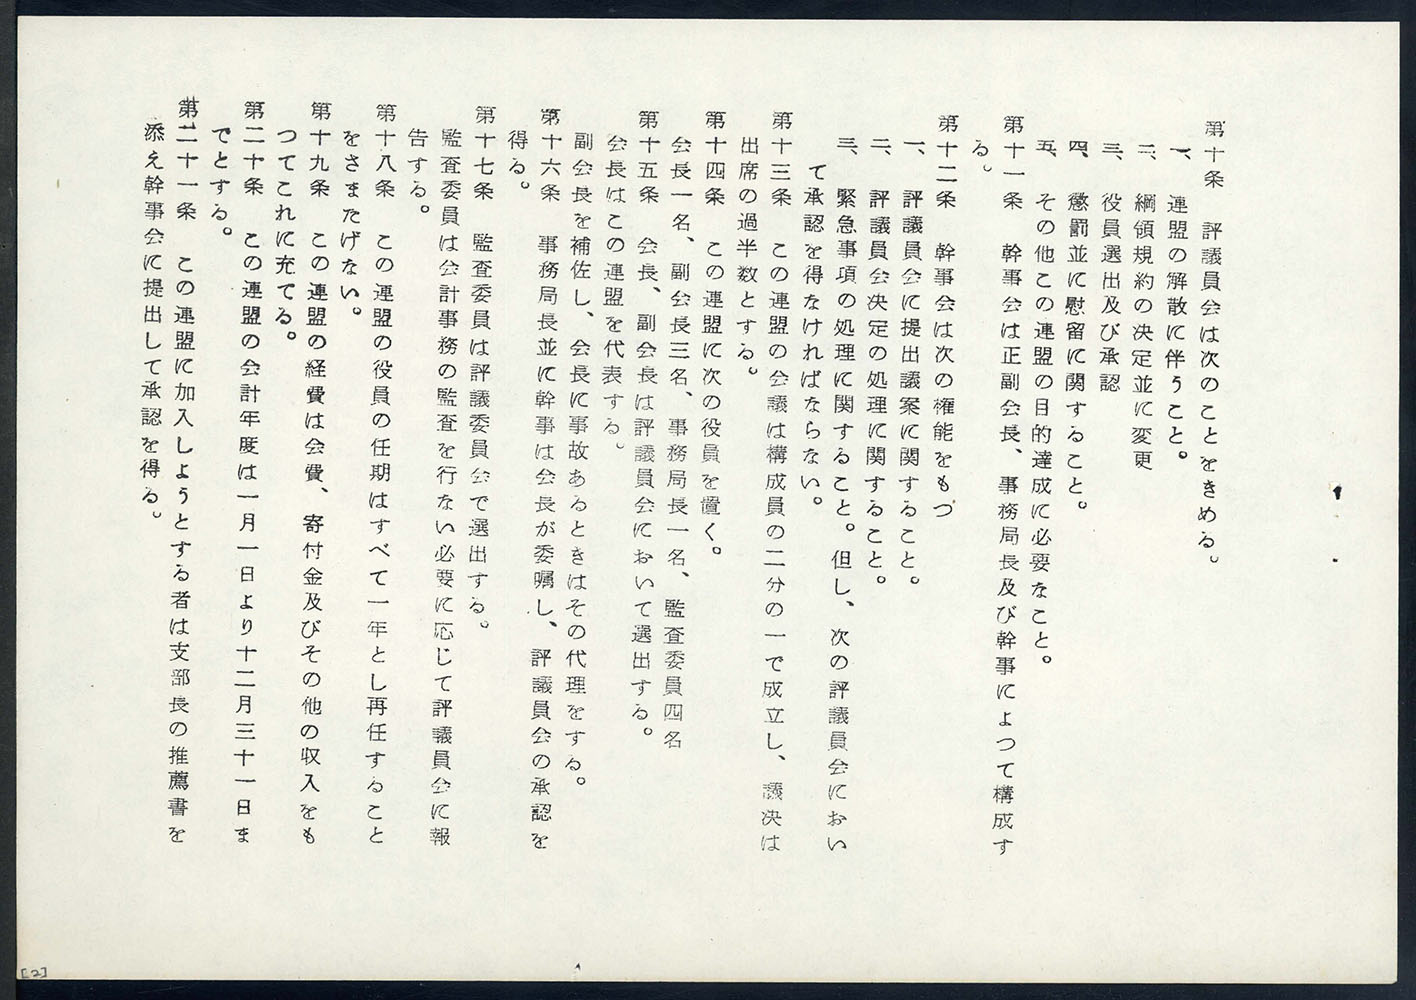 第十条　評議員会は次のことをきめる。
一、連盟の解散に伴うこと。
二、綱領規約の決定並に変更
三、役員選出及び承認
四、懲罰並に慰留に関すること。
五、その他この連盟の目的達成に必要なこと。
第十一条　幹事会は正副会長、事務局長及び幹事によつて構成す
る。
第十二条　幹事会は次の権能をもつ
一、評議員会に提出議案に関すること。
二、評議員会決定の処理に関すること。
三、緊急事項の処理に関すること。但し、次の評議員会におい
て承認を得なければならない。
第十三条　この連盟の会議は構成員の二分の一で成立し、議決は
出席の過半数とする。
第十四条　この連盟に次の役員を置く。
会長一名、副会長三名、事務局長一名、監査委員四名
第十五条　会長、副会長は評議員会において選出する。
会長はこの連盟を代表する。
副会長を補佐し、会長に事故あるときはその代理をする。
第十六条　事務局長並に幹事は会長が委嘱し、評議員会の承認を
得る。
第十七条　監査委員は評議委員会で選出する。
監査委員は会計事務の監査を行ない必要に応じて評議員会に報
告する。
第十八条　この連盟の役員の任期はすべて一年とし再任すること
をさまたげない。
第十九条　この連盟の経費は会費、寄付金及びその他の収入をも
つてこれに充てる。
第二十条　この連盟の会計年度は一月一日より十二月三十一日ま
でとする。
第二十一条　この連盟に加入しようとする者は支部長の推薦書を
添え幹事会に提出して承認を得る。
[2]